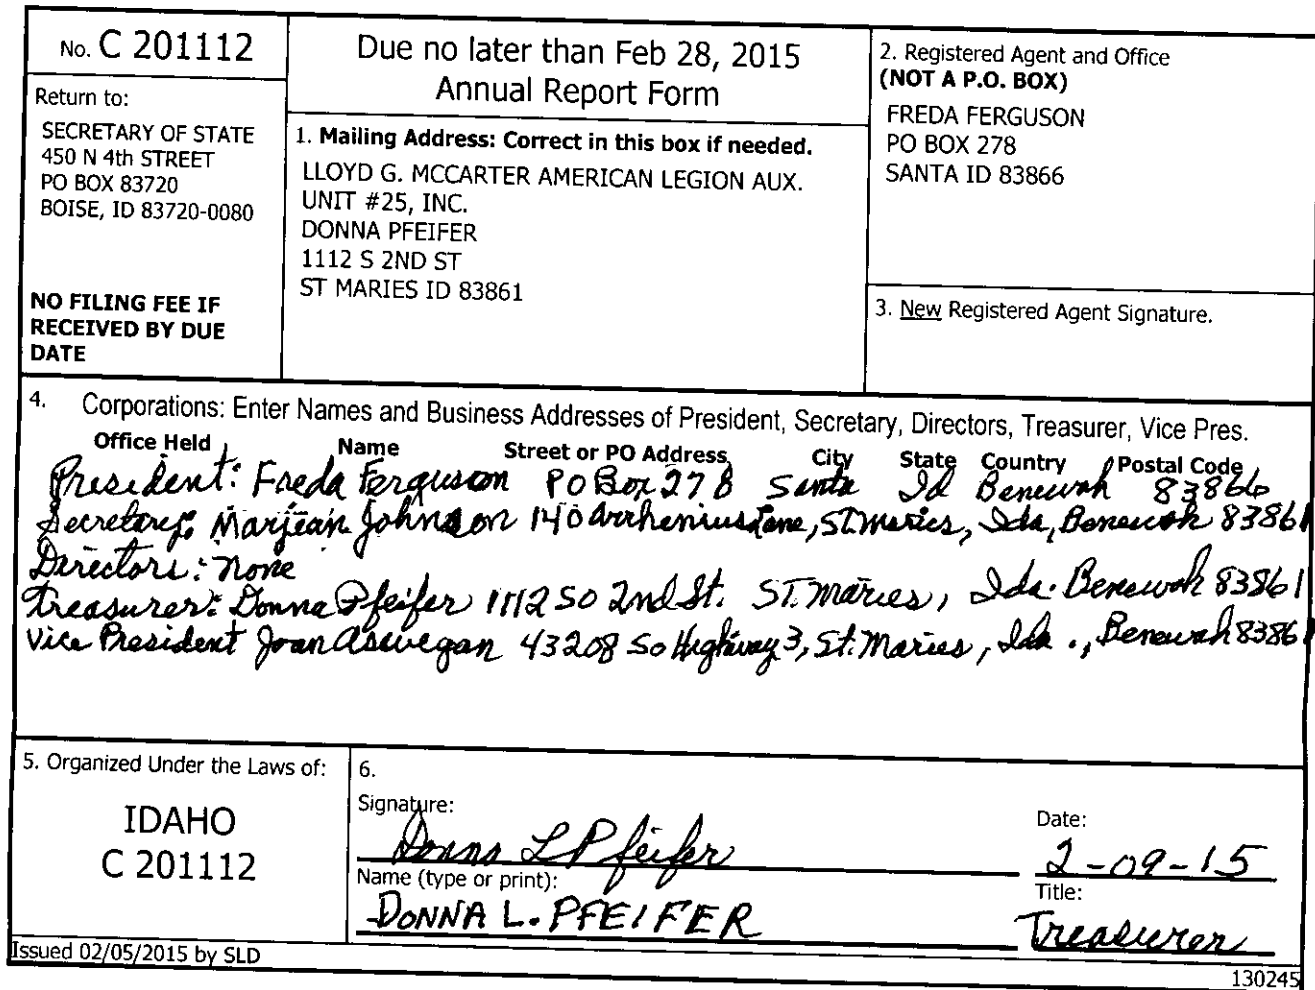 No. C 201112
Return to:
SECRETARY OF STATE
450 N 4th STREET
PO BOX 83720
BOISE, ID 83720-0080
NO FILING FEE IF
RECEIVED BY DUE
DATE
Due no later than Feb 28, 2015
Annual Report Form
1. Mailing Address: Correct in this box if needed.
LLOYD G. MCCARTER AMERICAN LEGION AUX.
UNIT #25, INC.
DONNA PFEIFER
1112 S 2ND ST
ST MARIES ID 83861
2. Registered Agent and Office
(NOT A P.O. BOX)
FREDA FERGUSON
PO BOX 278
SANTA ID 83866
3. New Registered Agent Signature.
4. Corporations: Enter Names and Business Addresses of President, Secretary, Directors, Treasurer, Vice Pres.
Office Held Name Street or PO Address City State Country Postal Code
President: Freda Ferguson PO Box 278 Santa Id Benewah 83866
Secretary: Marjean Johnson 140 Arrhenius Lane, St. Maries, Ida, Benewah 83861
Directors: none
Treasurer: Donna Pfeifer 1112 So 2nd St. ST. Maries, Ida. Benewah 83861
Vice President Joan Aswegan 43208 So Highway 3, St. Maries, Ida ., Benewah 83861
5. Organized Under the Laws of:
IDAHO
C 201112
6.
Signature:
Donna L Pfeifer
Date:
2-09-15
Name (type or print):
DONNA L. PFEIFER
Title:
Treasurer
Issued 02/05/2015 by SLD
130245